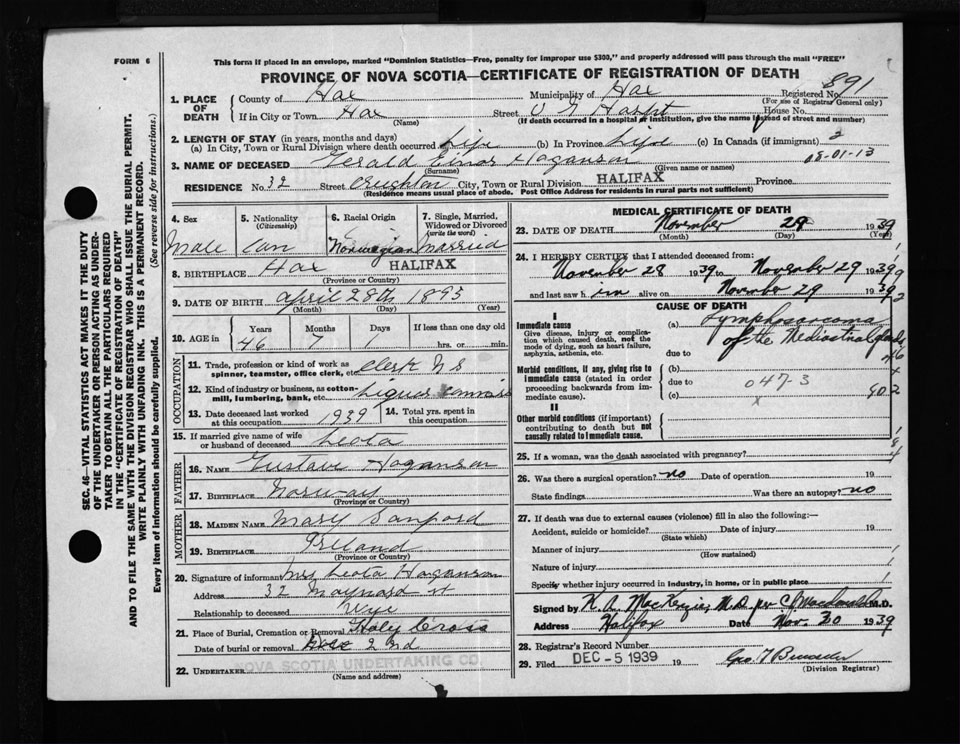 FORM 6
This form if placed in an envelope, marked "Dominion Statistics—Free, penalty for improper use $300," and properly addressed will pass through the mail "FREE"
PROVINCE OF NOVA SCOTIA—CERTIFICATE OF REGISTRATION OF DEATH
891
1. PLACE OF DEATH
County of Hax Municipality of Hax Registered No.
(For use of Registrar General only)
If in City or Town Hax Street V G Hospt House No.
(Name) (If death occurred in a hospital or institution, give the name instead of street and number)
2. LENGTH OF STAY (in years, months and days)
(a) In City, Town or Rural Division where death occurred Life (b) In Province Life (c) In Canada (if immigrant)
3. NAME OF DECEASED Gerald Haganson 08-01-13
(Surname) (Given name or names)
RESIDENCE No. 32 Street Creighton City, Town or Rural Division HALIFAX Province
(Residence means usual place of abode. Post Office Address for residents in rural parts not sufficient)
SEC. 46—VITAL STATISTICS ACT MAKES IT THE DUTY
OF THE UNDERTAKER OR PERSON ACTING AS UNDER-
TAKER TO OBTAIN ALL THE PARTICULARS REQUIRED
IN THE "CERTIFICATE OF REGISTRATION OF DEATH"
AND TO FILE THE SAME WITH THE DIVISION REGISTRAR WHO SHALL ISSUE THE BURIAL PERMIT.
WRITE PLAINLY WITH UNFADING INK. THIS IS A PERMANENT RECORD.
Every item of information should be carefully supplied. (See reverse side for instructions.)
4. Sex
Male
5. Nationality
(Citizenship)
Can
6. Racial Origin
Norwegian
7. Single, Married, Widowed or Divorced
(write the word)
Married
8. BIRTHPLACE Hax HALIFAX
(Province or Country)
9. DATE OF BIRTH April 28th 1893
(Month) (Day) (Year)
10. AGE in
Years Months Days If less than one day old
46 7 1 hrs. or min.
OCCUPATION
11. Trade, profession or kind of work as spinner, teamster, office clerk, etc. Clerk N S
12. Kind of industry or business, as cotton-mill, lumbering, bank, etc. Liquor Commis
13. Date deceased last worked at this occupation 1939
14. Total yrs. spent in this occupation
15. If married give name of wife or husband of deceased Leota
FATHER
16. NAME Gustave Haganson
17. BIRTHPLACE Norway
(Province or Country)
MOTHER
18. MAIDEN NAME Mary Sanford
19. BIRTHPLACE Ireland
(Province or Country)
20. Signature of informant Mrs Leota Haganson
Address 32 Maynard st
Relationship to deceased Wife
21. Place of Burial, Cremation or Removal Holy Cross
Date of burial or removal Dec 2nd
22. UNDERTAKER NOVA SCOTIA UNDERTAKING CO.
(Name and address)
MEDICAL CERTIFICATE OF DEATH
23. DATE OF DEATH November 29 1939
(Month) (Day) (Year)
24. I HEREBY CERTIFY that I attended deceased from:
November 28 1939 to November 29 1939
and last saw him alive on November 29 1939
CAUSE OF DEATH
I
Immediate cause
Give disease, injury or complication which caused death, not the mode of dying, such as heart failure, asphyxia, asthenia, etc.
(a) Lymphosarcoma
of the Mediastinal glands
due to
Morbid conditions, if any, giving rise to immediate cause (stated in order proceeding backwards from immediate cause).
(b)
due to 047-3
(c)
II
Other morbid conditions (if important) contributing to death but not causally related to immediate cause.
25. If a woman, was the death associated with pregnancy?
26. Was there a surgical operation? no Date of operation 19
State findings Was there an autopsy? no
27. If death was due to external causes (violence) fill in also the following:—
Accident, suicide or homicide? Date of injury 19
(State which)
Manner of injury
(How sustained)
Nature of injury
Specify whether injury occurred in industry, in home, or in public place
Signed by K. A. MacKenzie, M.D. per C J Macdonald M.D.
Address Halifax Date Nov. 30 1939
28. Registrar's Record Number
29. Filed DEC - 5 1939 19
(Division Registrar)